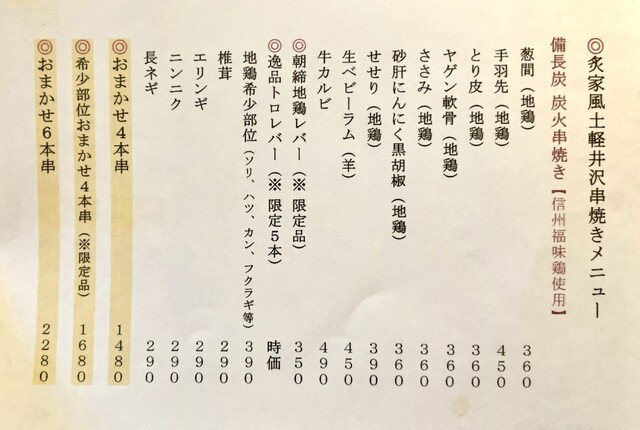 ◎炙家風土軽井沢串焼きメニュー
備長炭 炭火串焼き【信州福味鶏使用】
葱間（地鶏） 360
手羽先（地鶏） 450
とり皮（地鶏） 360
ヤゲン軟骨（地鶏） 360
ささみ（地鶏） 360
砂肝にんにく黒胡椒（地鶏） 360
せせり（地鶏） 390
生ベビーラム（羊） 450
牛カルビ 490
◎朝締地鶏レバー（※ 限定品） 350
◎逸品トロレバー（※ 限定5本） 時価
地鶏希少部位（ソリ、ハツ、カン、フクラギ等） 390
椎茸 290
エリンギ 290
ニンニク 290
長ネギ 290
◎おまかせ4本串 1480
◎希少部位おまかせ4本串（※限定品） 1680
◎おまかせ6本串 2280